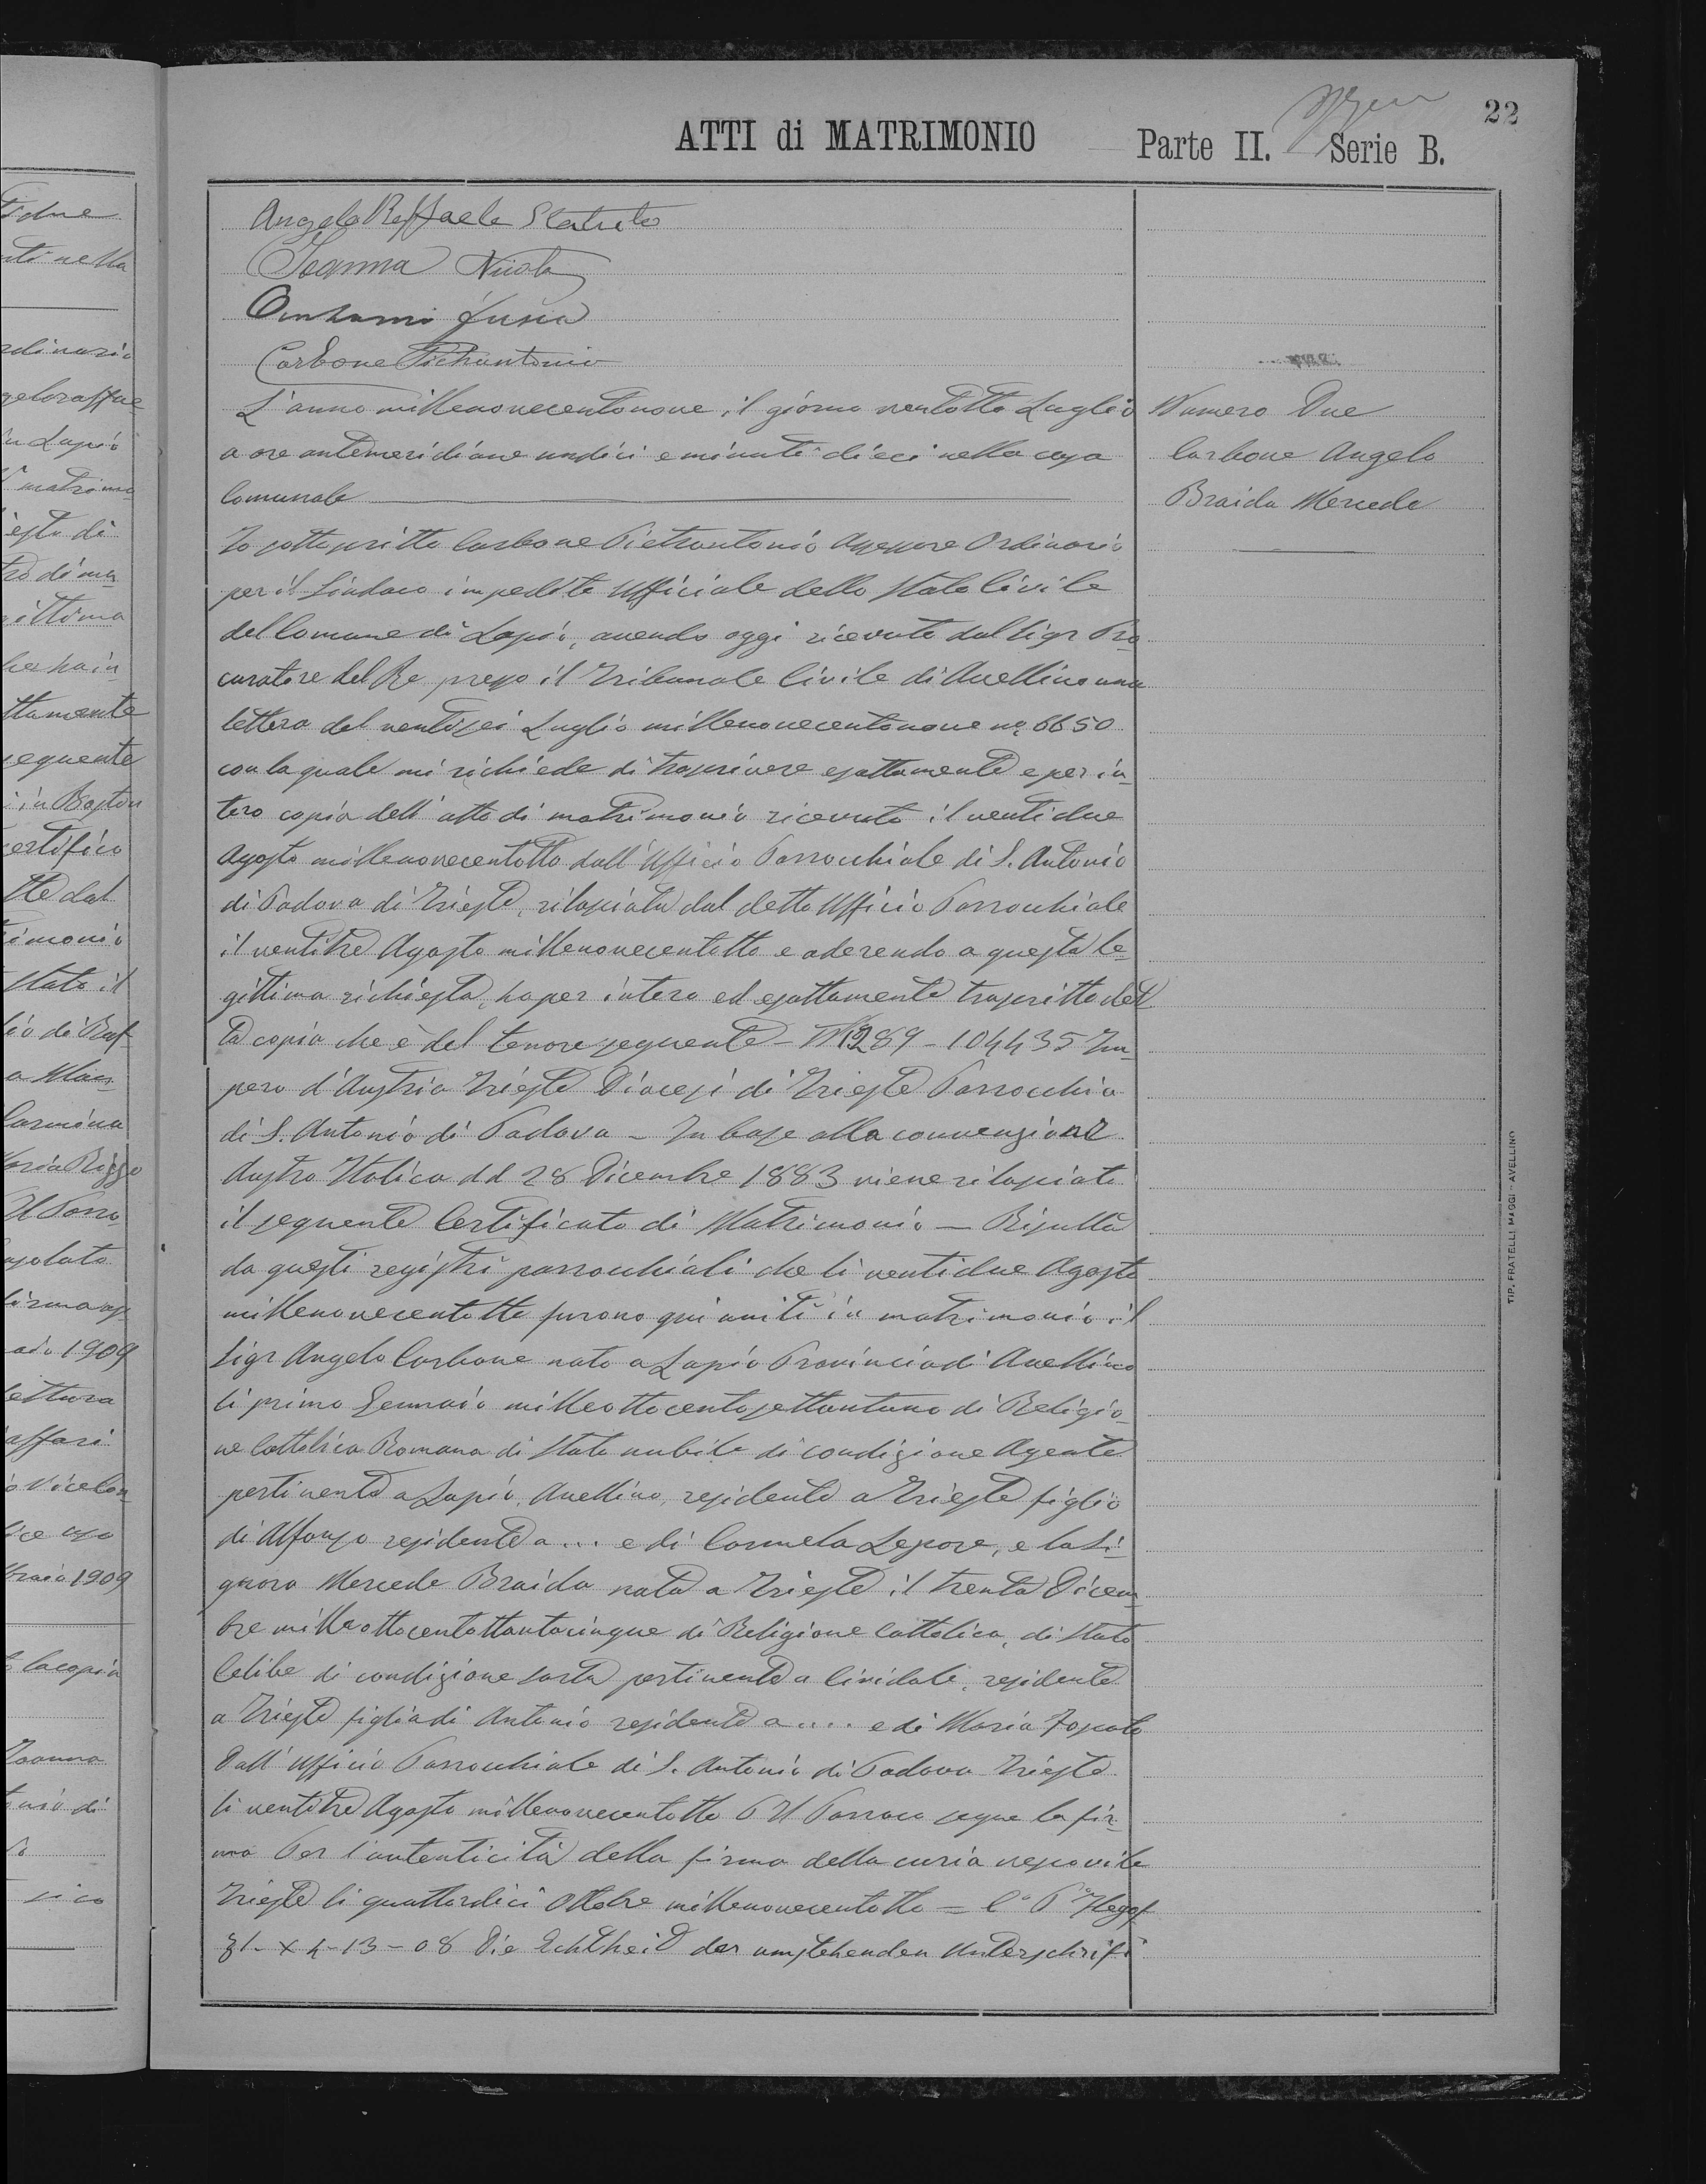 22
ATTI di MATRIMONIO Parte II. Serie B.
Angelo Raffaele Statuto
Ioanna Nicola
Carbone Pietrantonio
L'anno millenovecentonove, il giorno ventotto Luglio
a ore antemeridiane undici e minuti dieci nella casa
Comunale
Numero Due
Carbone Angelo
Braida Mercede
Io sottoscritto Carbone Pietrantonio Assessore Ordinario
per il Sindaco impedito Ufficiale dello Stato Civile
del Comune di Lapio, avendo oggi ricevuto dal Sigr Pro-
curatore del Re presso il Tribunale Civile di Avellino una
lettera del ventisei Luglio millenovecentonove no 6650
con la quale mi richiede di trascrivere esattamente e per in-
tero copia dell'atto di matrimonio ricevuto il ventidue
Agosto millenovecentotto dall'Ufficio Parrocchiale di S. Antonio
di Padova di Trieste, rilasciata dal detto Ufficio Parrocchiale
il ventitre Agosto millenovecentotto e aderendo a questa le-
gittima richiesta, ho per intero ed esattamente trascritto det
ta copia che è del tenore seguente - 289 - 104435 Im-
pero d'Austria Trieste Diocesi di Trieste Parrocchia
di S. Antonio di Padova - In base alla convenzione
Austro Italica dd 28 Dicembre 1883 viene rilasciato
il seguente Certificato di Matrimonio - Risulta
da questi registri parrocchiali che li ventidue Agosto
millenovecentotto furono qui uniti in matrimonio il
Sigr Angelo Carbone nato a Lapio Provincia di Avellino
li primo Gennaio milleottocentosettantuno di Religio-
ne Cattolica Romana di Stato nubile di condizione Agente
pertinente a Lapio, Avellino, residente a Trieste figlio
di Alfonso residente a ... e di Carmela Lepore, e la Si-
gnora Mercede Braida nata a Trieste il trenta Dicem-
bre milleottocentottantacinque di Religione Cattolica, di Stato
Celibe di condizione sarta pertinente a Cividale, residente
a Trieste figlia di Antonio residente a .... e di Maria
Dall'Ufficio Parrocchiale di S. Antonio di Padova Trieste
li ventitre Agosto millenovecentotto Il Parroco segue la fir-
ma Per l'autenticità della firma della curia vescovile
Trieste li quattordici Ottobre millenovecentotto =
Zl - X 4-13-08 Die Echtheit der umstehenden Unterschrift
TIP. FRATELLI MAGGI - AVELLINO